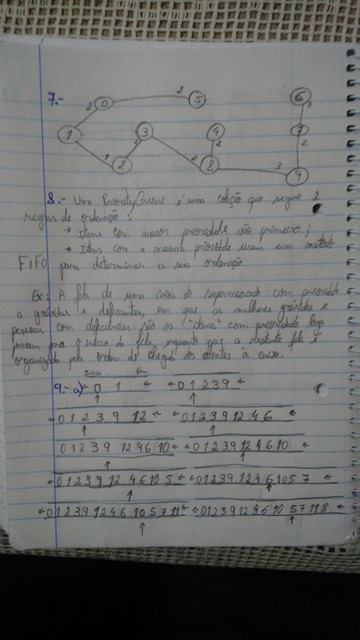 7.-
0 2 5 6
2 1
1 3 4 7
1 2 2 2
2 8 3 9
8.- Uma PriorityQueue é uma coleção que segue 2
regras de ordenação:
→ Itens com maior prioridade vão primeiro;
→ Itens com a mesma prioridade usam um método
FIFO para determinar a sua ordenação.
Ex: A fila de uma caixa de supermercado com prioridade
a grávidas e deficientes, em que as mulheres grávidas e
pessoas com deficiências são os "itens" com prioridade logo
passam para o início da fila, enquanto que a restante fila é
organizada pela ordem de chegada dos clientes à caixa.
9.- a) ← 0 1 ← ← 0 1 2 3 9 ←
← 0 1 2 3 9 12 ← ← 0 1 2 3 9 12 4 6 ←
0 1 2 3 9 12 4 6 10 ← ← 0 1 2 3 9 12 4 6 10 ←
← 0 1 2 3 9 12 4 6 10 5 ← ← 0 1 2 3 9 12 4 6 10 5 7 ←
← 0 1 2 3 9 12 4 6 10 5 7 11 ← ← 0 1 2 3 9 12 4 6 10 5 7 11 8 ←